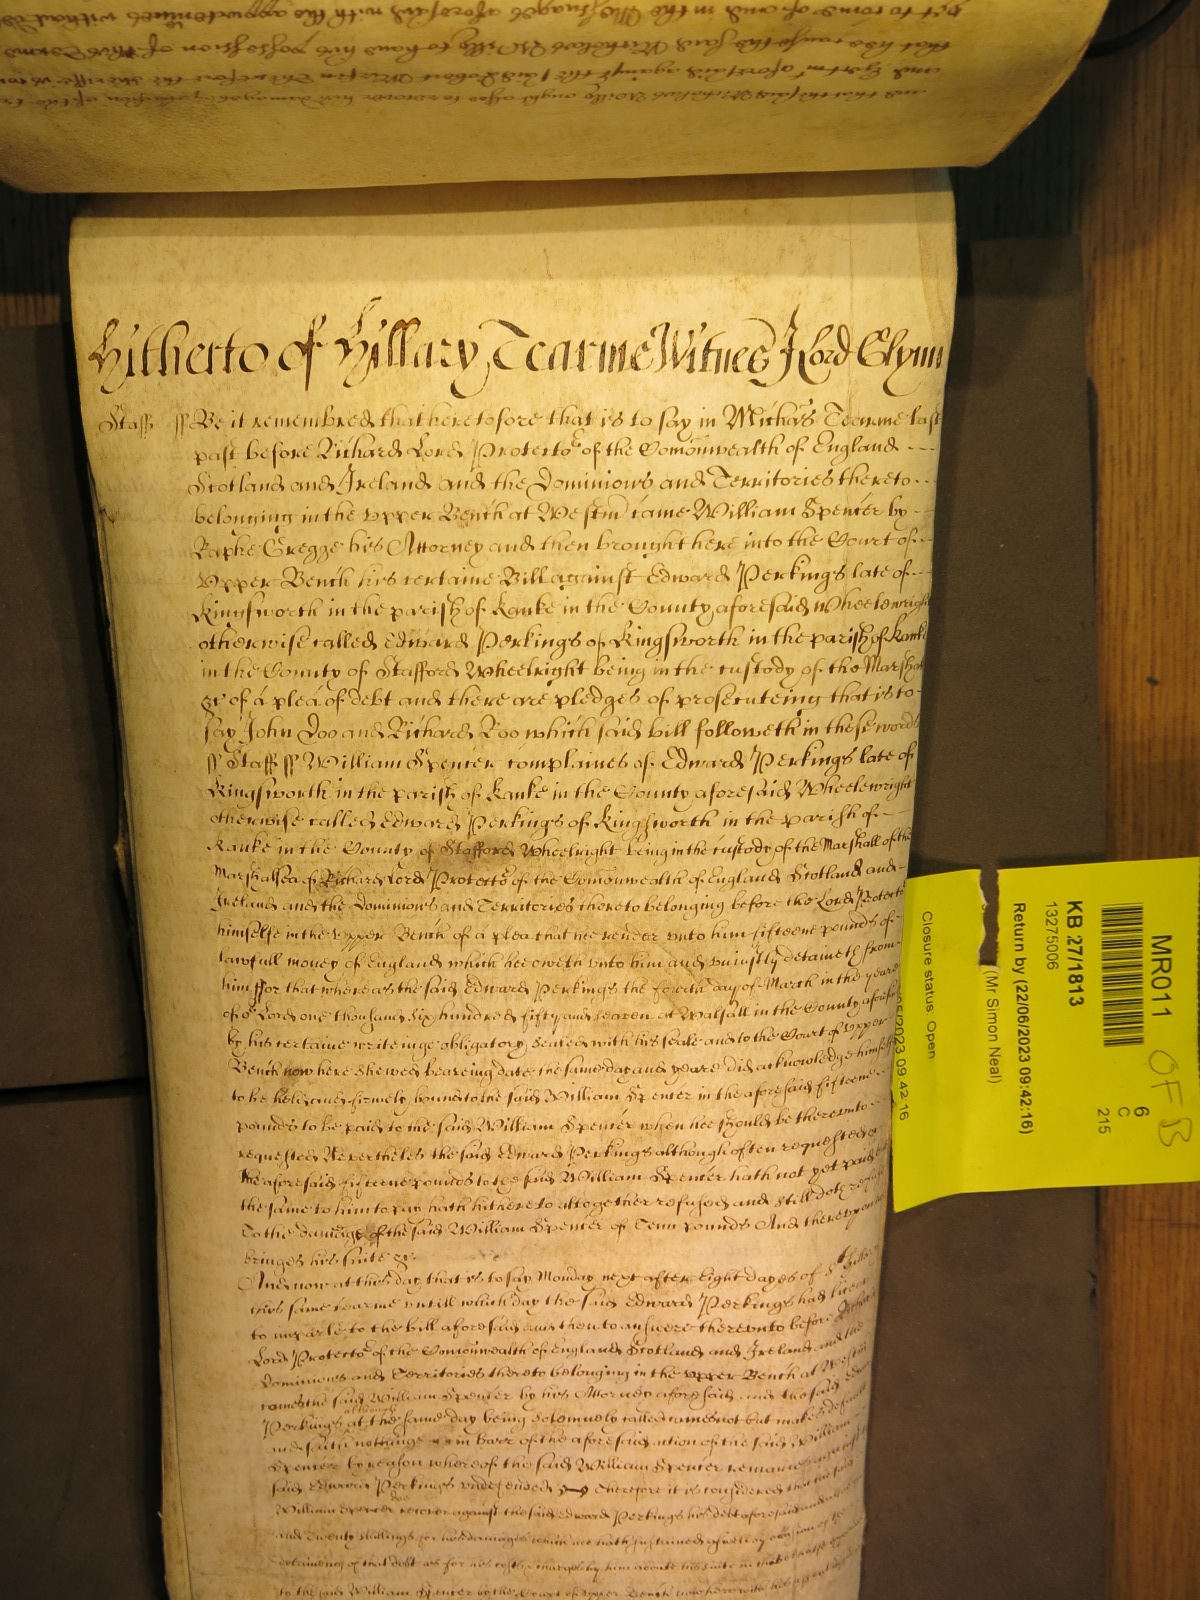 yet to come of and in the Messuages aforesaid with the appurtenances
that hee cause the said Nicholas Willy to have his possession of this Terme
aforesaid against the said Robert
and that the said Nicholas Willy ought alsoe to recover his damages
Hitherto of Hillary Tearme Witnes J Lord Glynn
Staff ss Be it remembred that heretofore that is to say in Michas Tearme last
past before Richard Lord Protector of the Comonwealth of England
Scotland and Ireland and the Dominions and Territories thereto
belonging in the upper Bench at Westm came William Spencer by
Raphe Gregge his Attorney and then brought here into the Court of
Upper Bench his certaine Bill against Edward Perkings late of
Kingsworth in the parish of Kanke in the County aforesaid Wheelewright
otherwise called Edward Perkings of Kingsworth in the parish of Kanke
in the County of Stafford Wheelright being in the custody of the Marshall
&c of a plea of debt and there are pledges of prosecuteing that is to
say John Doo and Richard Roo which said bill followeth in these words
ss Staff ss William Spencer complaines of Edward Perkings late of
Kingsworth in the parish of Kanke in the County aforesaid Wheelewright
otherwise called Edward Perkings of Kingsworth in the parish of
Kanke in the County of Stafford Wheelright being in the custody of the Marshall of the
Marshalsea of Richard Lord Protector of the Comonwealth of England Scotland and
Ireland and the Dominions and Territories thereto belonging before the Lord Protector
himselfe in the Upper Bench of a plea that hee render unto him fifteene pounds of
lawfull money of England which hee oweth unto him and uniustly detaineth from
him ffor that whereas the said Edward Perkings the fourth day of March in the yeare
of or Lord one thousand six hundred fifty and seaven at Walsall in the County aforesaid
by his certaine writeinge obligatory sealed with his seale and to the Court of Upper
Bench now here shewed beareing date the same day and yeare did acknowledge himselfe
to be held and firmely bound to the said William Spencer in the aforesaid fifteene
pounds to be paid to the said William Spencer when hee should be thereunto
requested Neverthelès the said Edward Perkings although often requested
the aforesaid fifteene pounds to the said William Spencer hath not yet paid
the same to him to pay hath hitherto altogether refused and still doth refuse
To the damage of the said William Spencer of Tenn pounds And thereupon
bringes his suite &c
And now at this day that is to say Monday next after Eight dayes of St Hillary
this same tearme untill which day the said Edward Perkings had licence
to imparle to the bill aforesaid and then to answere thereunto before Richard
Lord Protector of the Comonwealth of England Scotland and Ireland and the
Dominions and Territories thereto belonging in the upper Bench at Westm
comes the said William Spencer by his Attorney aforesaid and the said Edward
Perkings although at the same day being solemnely called comes not but makes default
and saith nothinge in barr of the aforesaid action of the said William
Spencer by reason whereof the said William Spencer remaines against the
said Edward Perkings undefended Therefore it is considered that the said
William Spencer recover against the said Edward Perkings his debt aforesaid and
and Twenty shillings for his damages which hee hath sustained aswell by occasion of the
detaineing of that debt as for his costs & charges by him about his suite in that behalfe
to the said William Spencer by the Court of Upper Bench now here with his assent
MR011
KB 27/1813
13275006
Return by (22/06/2023 09:42:16)
(Mr Simon Neal)
Closure status: Open
05/2023 09:42:16
6
C
215
OFB